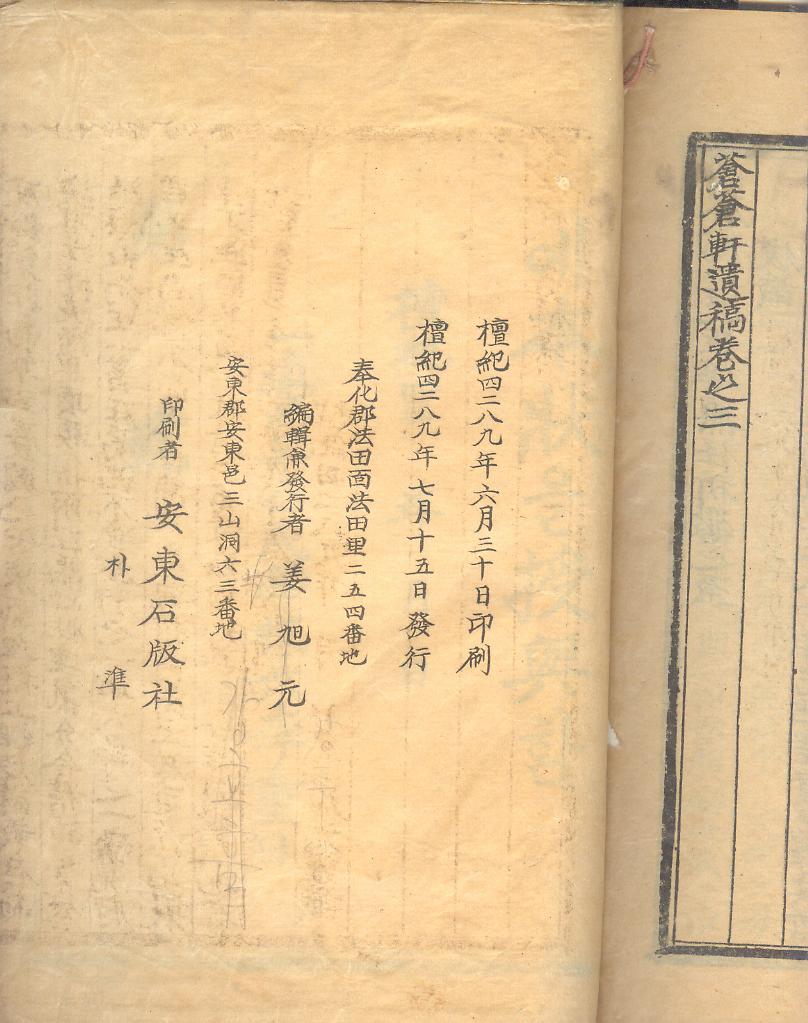 蒼蒼軒遺稿卷之三
檀紀四二八九年六月三十日印刷
檀紀四二八九年七月十五日發行
奉化郡法田面法田里二五四番地
編輯兼發行者 姜旭元
安東郡安東邑三山洞六三番地
印刷者 安東石版社
朴準